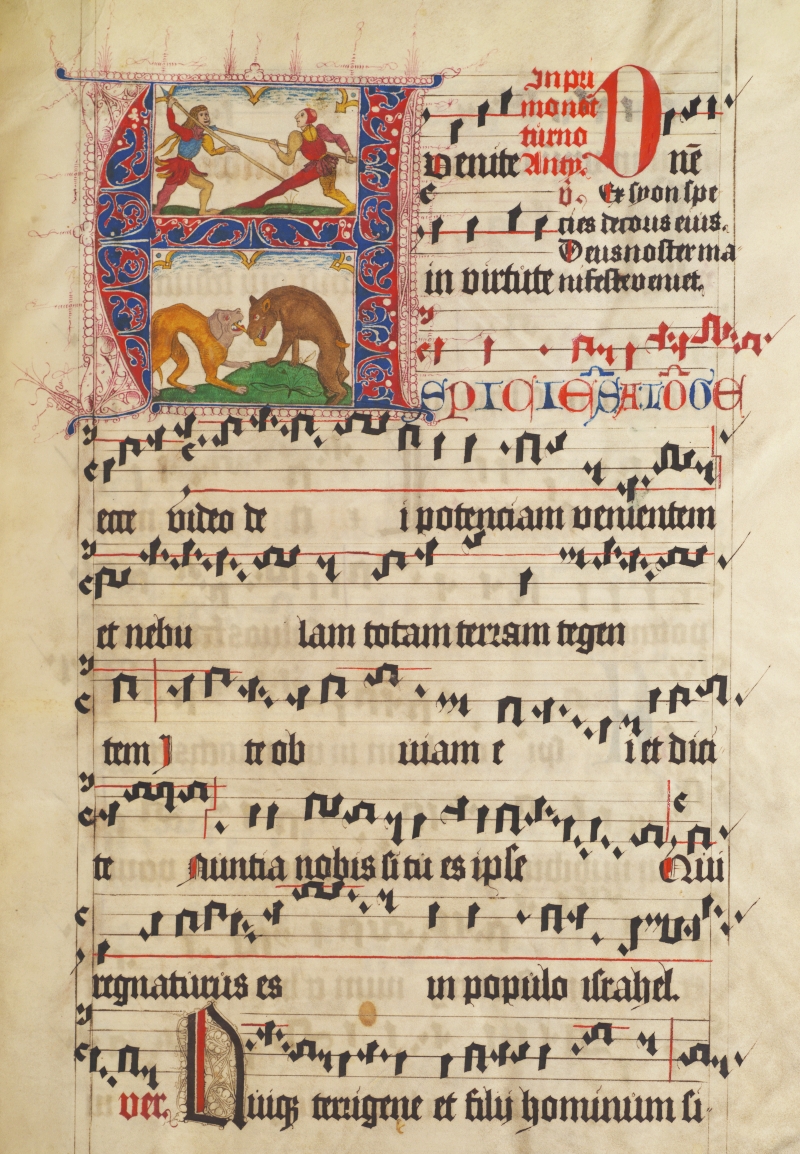 In pri
mo noct
turno
Anty.
D
venite nē
v. Ex syon spe
cies decoris eius.
Deus noster ma
in virtute nifeste veniet.
A SPICIE̅S A LO̅GE
ecce video de i potenciam venientem
et nebu lam totam terram tegen
tem I te ob uiam e i et dici
te Nuntia nobis si tu es ipse Qui
regnaturus es in populo israhel.
ver. Quiqꝫ terrigene et filij hominum si-